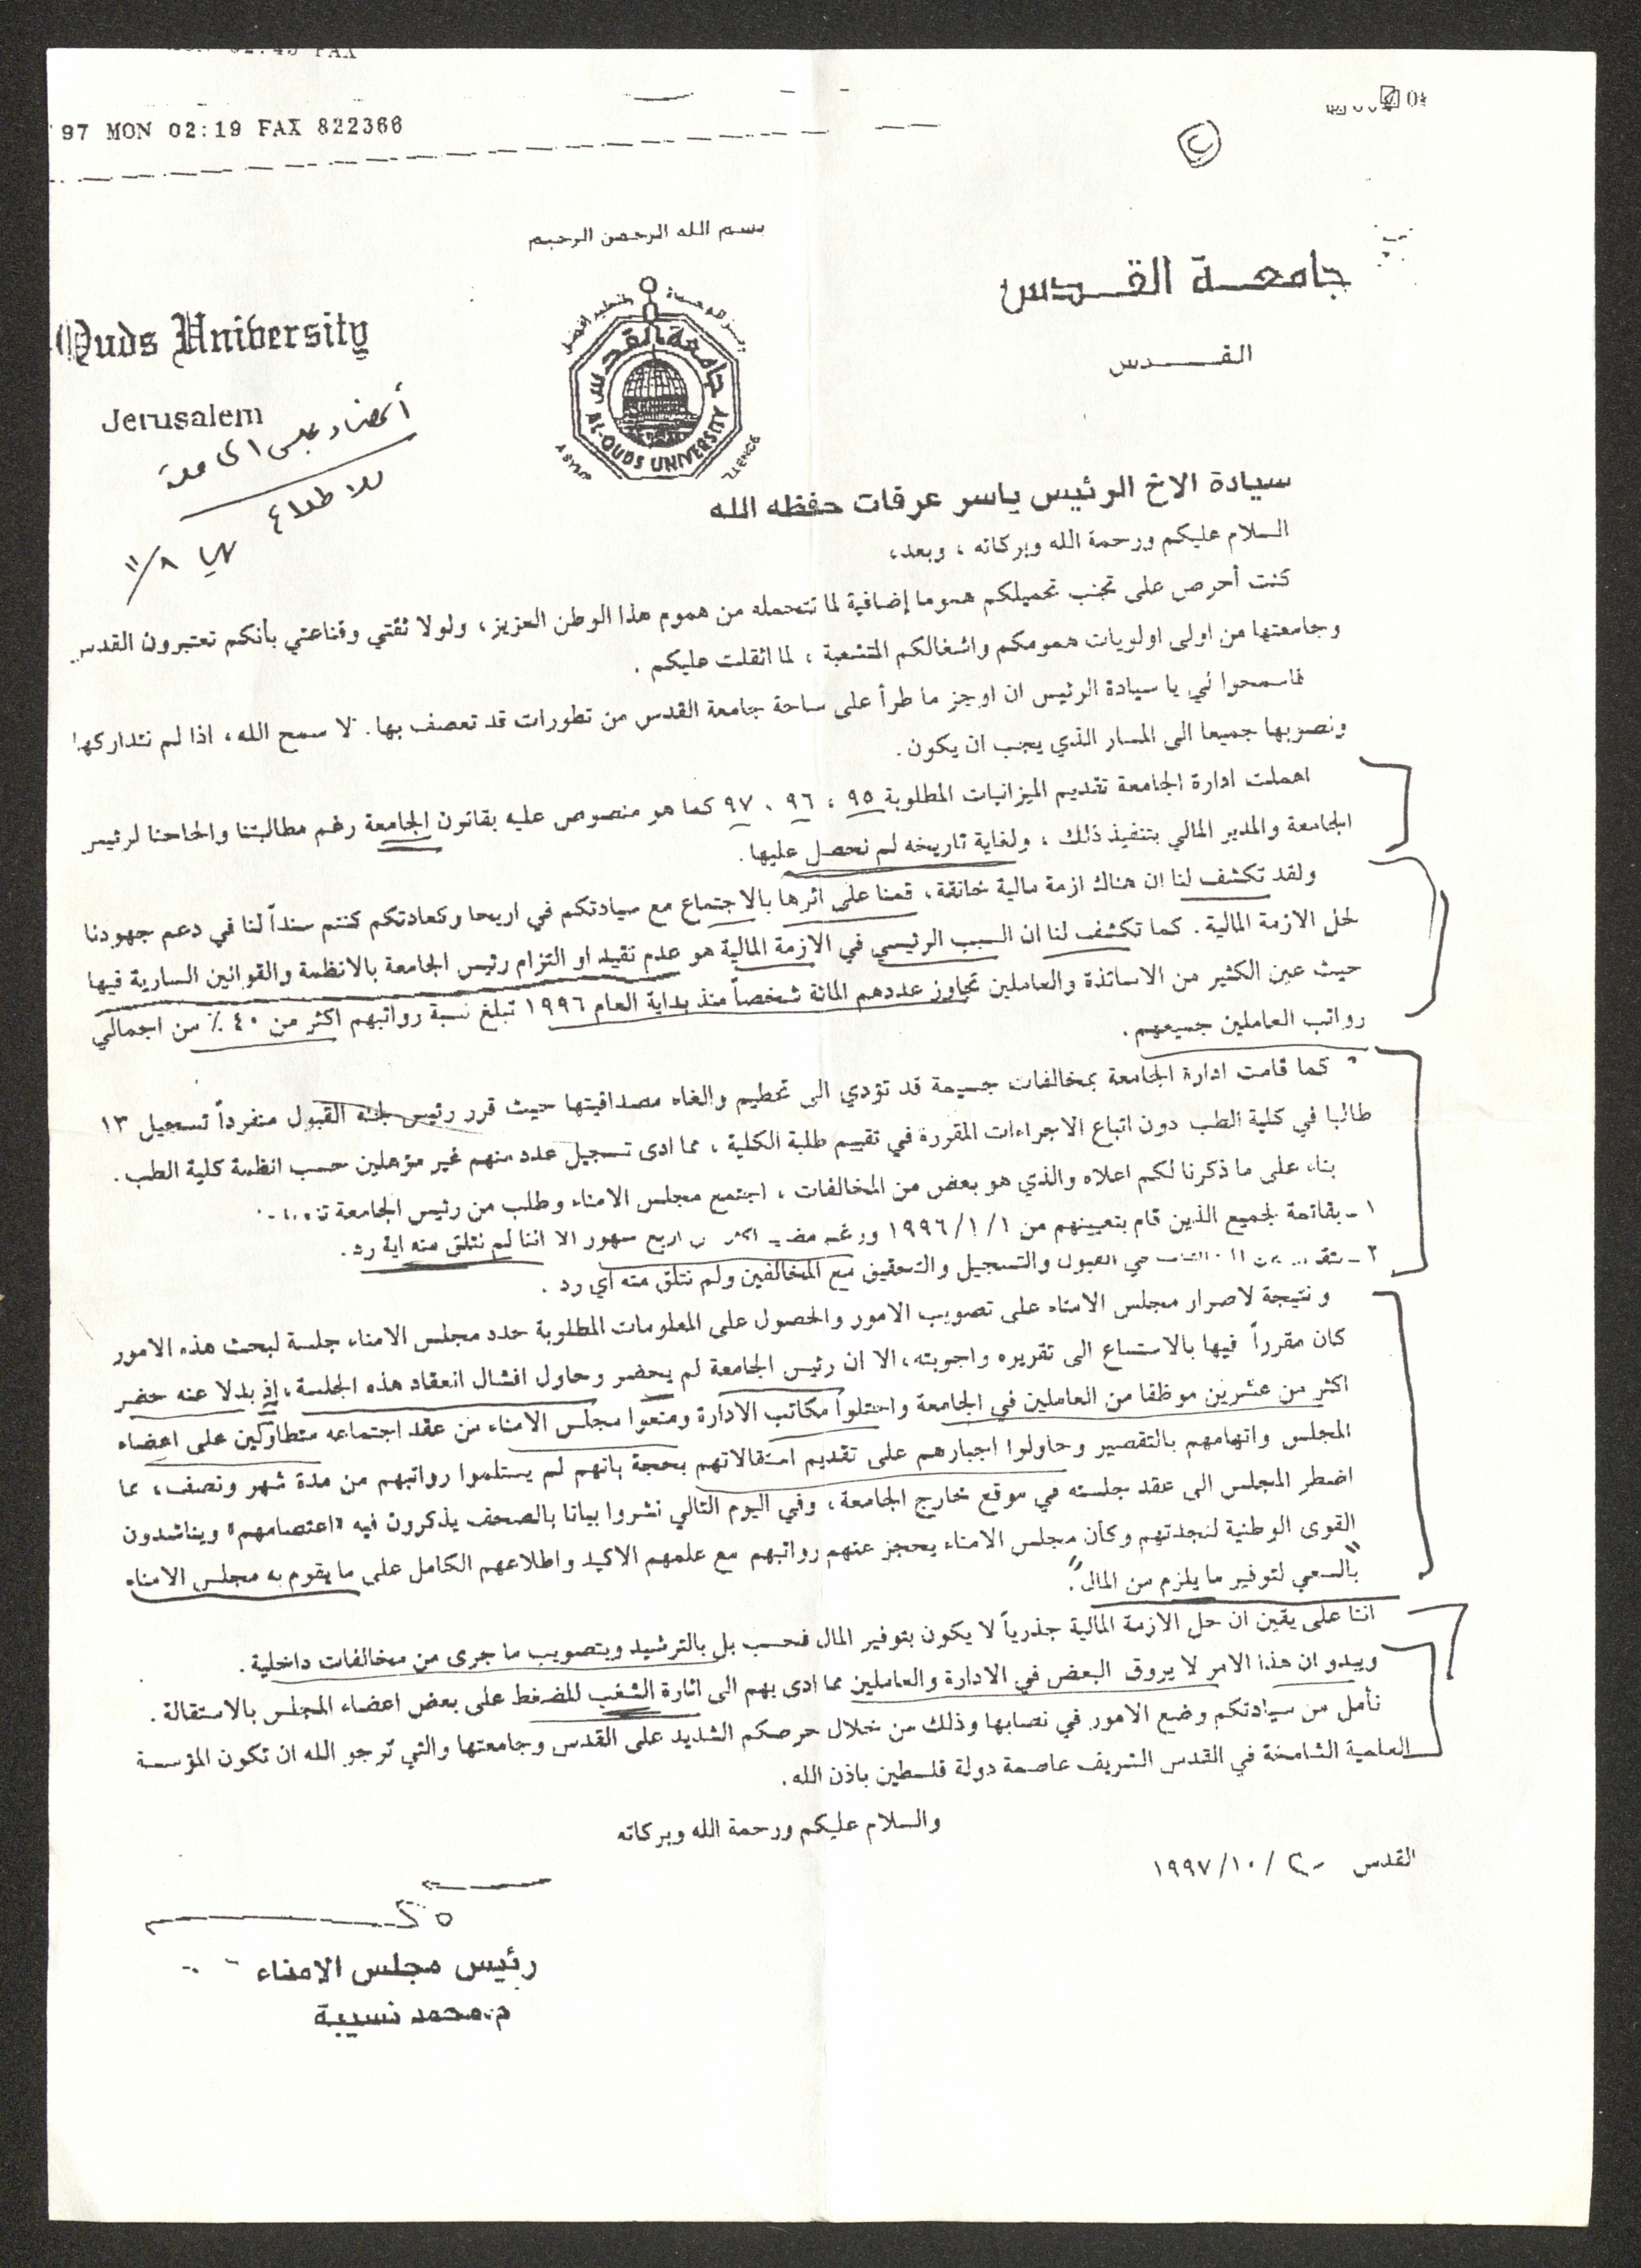 97 MON 02:19 FAX 822366
بسم الله الرحمن الرحيم
جامعة القدس
القدس
Quds University
Jerusalem
جامعة القدس
AL-QUDS UNIVERSITY
أعضاء مجلس الجامعة
للاطلاع
١١/٨
سيادة الاخ الرئيس ياسر عرفات حفظه الله
السلام عليكم ورحمة الله وبركاته ، وبعد،
كنت أحرص على تجنب تحميلكم هموما إضافية لما تتحمله من هموم هذا الوطن العزيز، ولولا ثقتي وقناعتي بأنكم تعتبرون القدس
وجامعتها من اولى اولويات همومكم واشغالكم المتشعبة ، لما اثقلت عليكم .
فاسمحوا لي يا سيادة الرئيس ان اوجز ما طرأ على ساحة جامعة القدس من تطورات قد تعصف بها. لا سمح الله، اذا لم نتداركها
ونصوبها جميعا الى المسار الذي يجب ان يكون.
اهملت ادارة الجامعة تقديم الميزانيات المطلوبة ٩٥ ، ٩٦ ، ٩٧ كما هو منصوص عليه بقانون الجامعة رغم مطالبتنا والحاحنا لرئيس
الجامعة والمدير المالي بتنفيذ ذلك ، ولغاية تاريخه لم نحصل عليها.
ولقد تكشف لنا ان هناك ازمة مالية خانقة، قمنا على اثرها بالاجتماع مع سيادتكم في اريحا وكعادتكم كنتم سنداً لنا في دعم جهودنا
لحل الازمة المالية. كما تكشف لنا ان السبب الرئيسي في الازمة المالية هو عدم تقيد او التزام رئيس الجامعة بالانظمة والقوانين السارية فيها
حيث عين الكثير من الاساتذة والعاملين تجاوز عددهم المائة شخصاً منذ بداية العام ١٩٩٦ تبلغ نسبة رواتبهم اكثر من ٤٠ ٪ من اجمالي
رواتب العاملين جميعهم.
كما قامت ادارة الجامعة بمخالفات جسيمة قد تؤدي الى تحطيم والغاء مصداقيتها حيث قرر رئيس لجنة القبول منفرداً تسجيل ١٣
طالبا في كلية الطب دون اتباع الاجراءات المقررة في تقييم طلبة الكلية ، مما ادى تسجيل عدد منهم غير مؤهلين حسب انظمة كلية الطب .
بناء على ما ذكرنا لكم اعلاه والذي هو بعض من المخالفات ، اجتمع مجلس الامناء وطلب من رئيس الجامعة
١ - بقائمة لجميع الذين قام بتعيينهم من ١٩٩٦/١/١ ورغم مضي اكثر من اربع شهور الا اننا لم نتلق منه اية رد.
٢ - في القبول والتسجيل والتحقيق مع المخالفين ولم نتلق منه أي رد .
ونتيجة لاصرار مجلس الامناء على تصويب الامور والحصول على المعلومات المطلوبة حدد مجلس الامناء جلسة لبحث هذه الامور
كان مقرراً فيها بالاستماع الى تقريره واجوبته، الا ان رئيس الجامعة لم يحضر وحاول افشال انعقاد هذه الجلسة، إذ بدلا عنه حضر
اكثر من عشرين موظفا من العاملين في الجامعة واحتلوا مكاتب الادارة ومنعوا مجلس الامناء من عقد اجتماعه متطاولين على اعضاء
المجلس واتهامهم بالتقصير وحاولوا اجبارهم على تقديم استقالاتهم بحجة بانهم لم يستلموا رواتبهم من مدة شهر ونصف، مما
اضطر المجلس الى عقد جلسته في موقع خارج الجامعة، وفي اليوم التالي نشروا بيانا بالصحف يذكرون فيه "اعتصامهم" ويناشدون
القوى الوطنية لنجدتهم وكأن مجلس الامناء يحجز عنهم رواتبهم مع علمهم الاكيد واطلاعهم الكامل على ما يقوم به مجلس الامناء
"بالسعي لتوفير ما يلزم من المال".
اننا على يقين ان حل الازمة المالية جذرياً لا يكون بتوفير المال فحسب بل بالترشيد وبتصويب ما جرى من مخالفات داخلية.
ويبدو ان هذا الامر لا يروق البعض في الادارة والعاملين مما ادى بهم الى اثارة الشغب للضغط على بعض اعضاء المجلس بالاستقالة .
نأمل من سيادتكم وضع الامور في نصابها وذلك من خلال حرصكم الشديد على القدس وجامعتها والتي نرجو الله ان تكون المؤسسة
العلمية الشامخة في القدس الشريف عاصمة دولة فلسطين باذن الله.
والسلام عليكم ورحمة الله وبركاته
القدس ٢٠ / ١٠ / ١٩٩٧
رئيس مجلس الامناء
م.محمد نسيبة